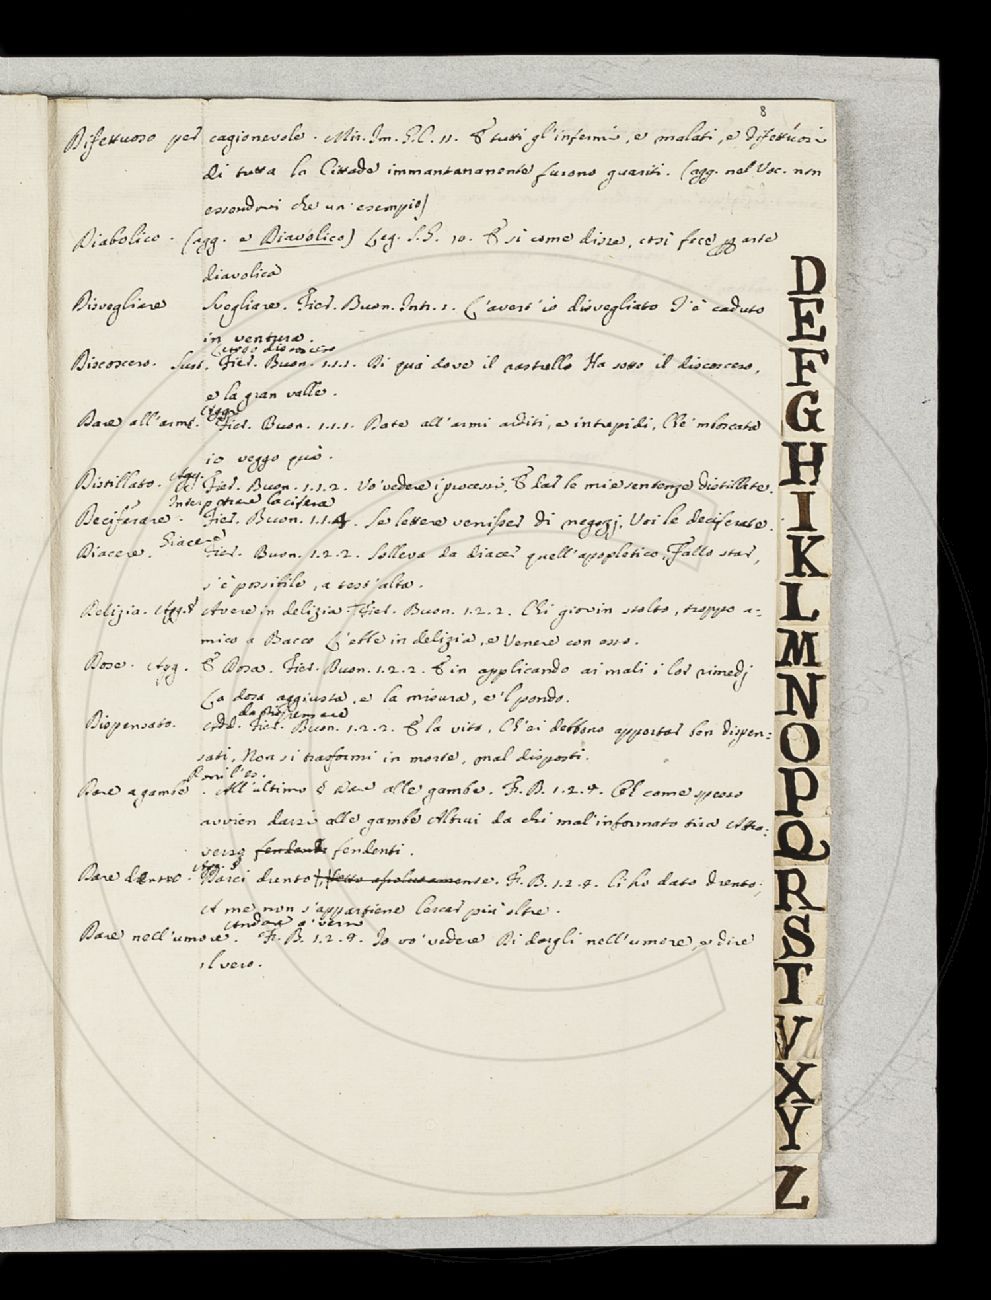 8
Difettuoso per cagionevole. Mir. Im. S.C. 11. E tutti gl'infermi, e malati, e difettuosi
di tutta la Cittade immantanente furono guariti. (agg. nel Voc. non
essendovi che un esempio)
Diabolico. (agg. e Diavolico) Leg. S.G. 10. E sì come disse, così fece arte
diavolica
Disvegliare Svegliare. Fier. Buon. Intr. 1. L'avert'io disvegliato T'è caduto
in ventura.
Discosceso. Sust. Fier. Buon. 1.1.1. Di qua dove il rastrello Ha sotto il discosceso,
e la gran valle.
Dare all'armi. Fier. Buon. 1.1.1. Date all'armi arditi, e intrepidi, Ch'è imboscata
io veggo quà.
Distillato. Agg. Fier. Buon. 1.1.2. Vo vedere i processi, E dar le mie sentenze distillate.
Interpetrare la cifera
Deciferare. Fier. Buon. 1.1.4. Se lettere venisser di negozj, Voi le deciferate.
Giacere
Diacere. Fier. Buon. 1.2.2. Solleva da diacer quell'apopletico, Fallo star,
s'è possibile, a test'alta.
Delizia. Agg. Avere in delizia Fier. Buon. 1.2.2. Chi giovin stolto, troppo a-
mico a Bacco L'ebbe in delizia, e Venere con esso.
Dose. Agg. E Dosa. Fier. Buon. 1.2.2. E in applicando ai mali i lor rimedj
La dosa aggiusta, e la misura, e'l pondo.
Dispensato. Add. Fier. Buon. 1.2.2. E la vita, Ch'ei debbono apportar ben dispen=
sati, Non si trasformi in morte, mal disposti.
Dare a gambe. All'ultimo § Dare alle gambe. F. B. 1.2.4. Col come spesso
avvien darsi alle gambe Altrui da chi mal'informato tira Attra-
verso fendenti fendenti.
Dare dentro. Darci drento detto assolutamente. F. B. 1.2.4. Ci ho dato drento;
A me non s'appartiene cercar più oltre.
Andare a' versi
Dare nell'umore. F. B. 1.2.4. Io vo' vedere Di dargli nell'umore, e dire
il vero.
D
E
F
G
H
I
K
L
M
N
O
P
Q
R
S
T
V
X
Y
Z